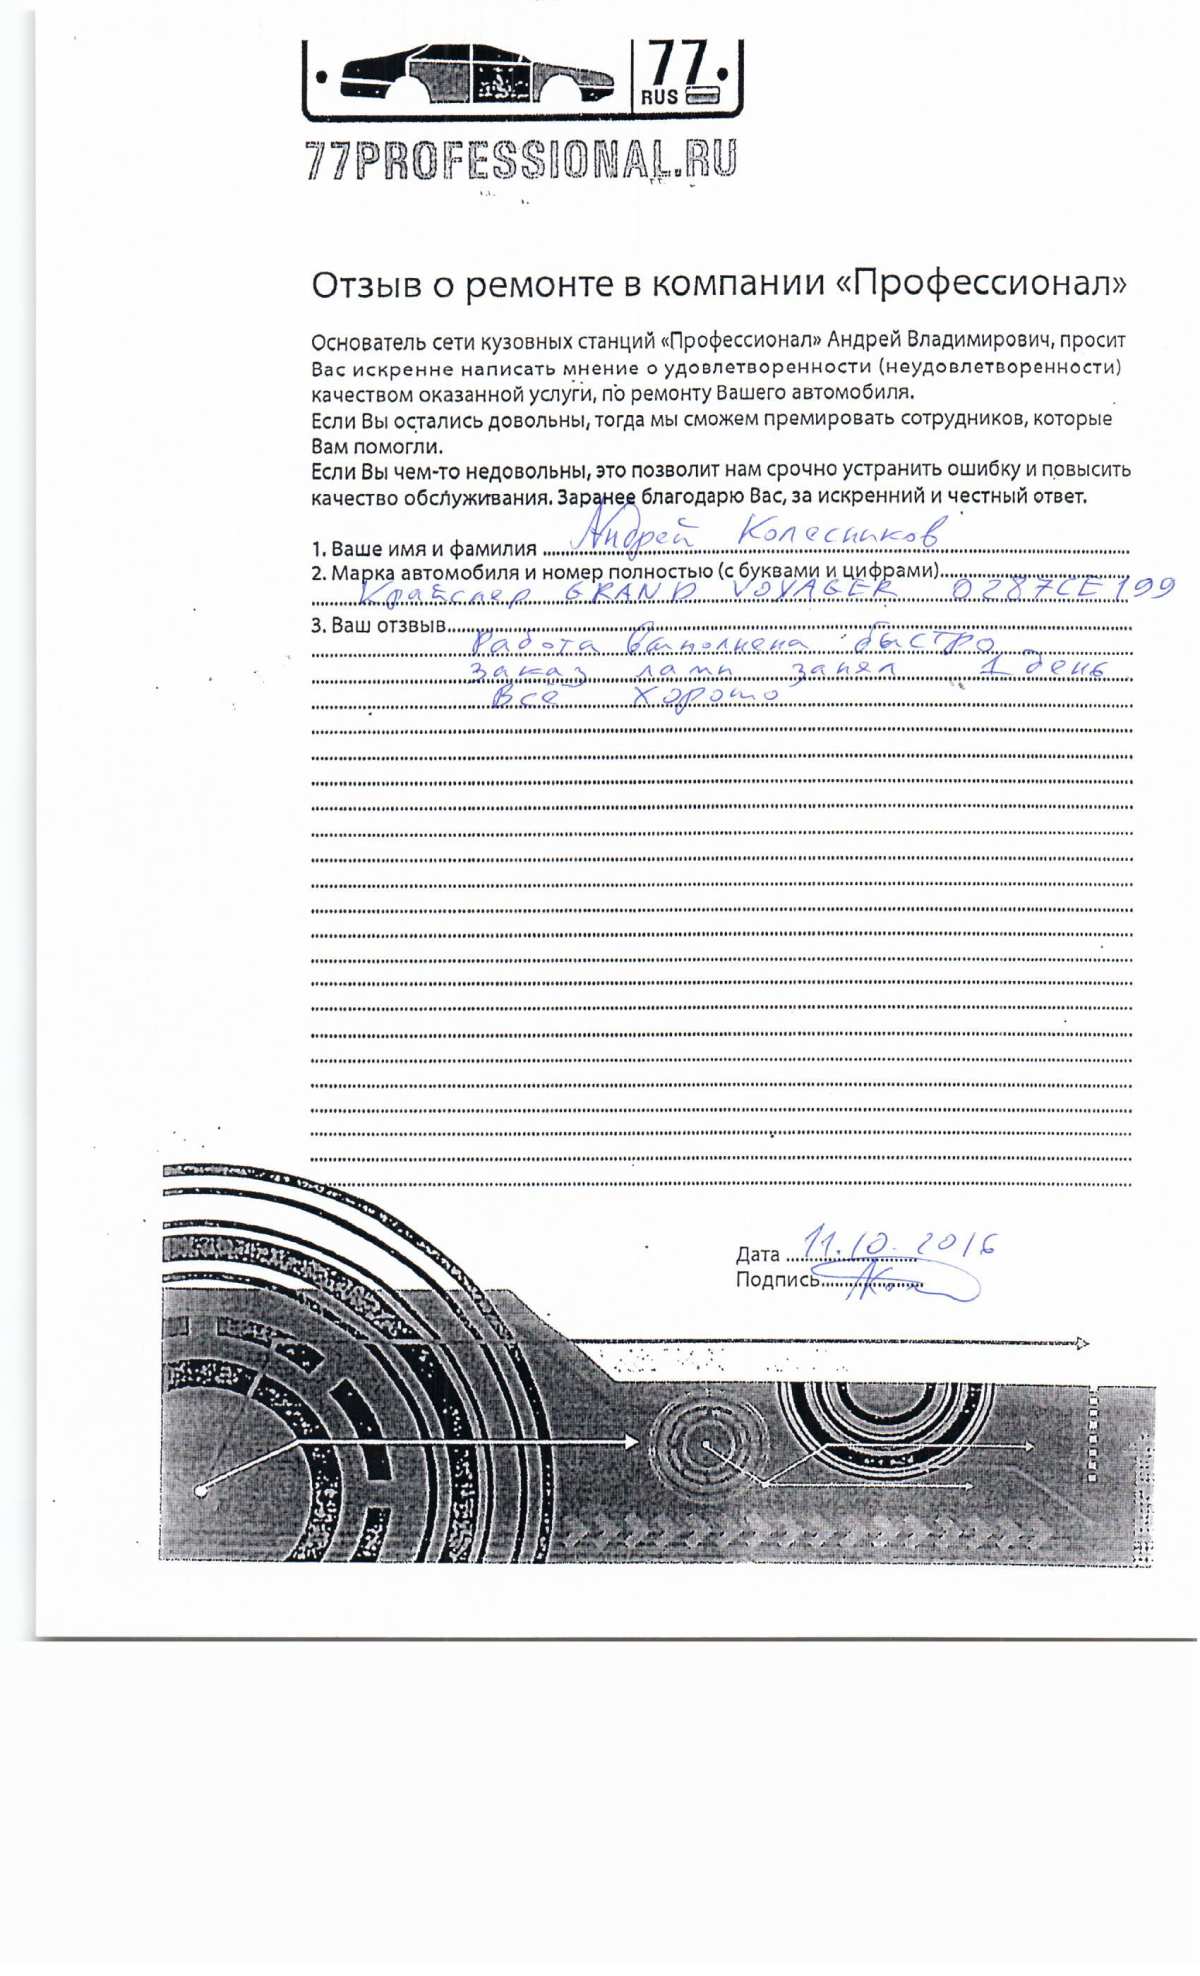 77
RUS
77PROFESSIONAL.RU
Отзыв о ремонте в компании «Профессионал»
Основатель сети кузовных станций «Профессионал» Андрей Владимирович, просит
Вас искренне написать мнение о удовлетворенности (неудовлетворенности)
качеством оказанной услуги, по ремонту Вашего автомобиля.
Если Вы остались довольны, тогда мы сможем премировать сотрудников, которые
Вам помогли.
Если Вы чем-то недовольны, это позволит нам срочно устранить ошибку и повысить
качество обслуживания. Заранее благодарю Вас, за искренний и честный ответ.
1. Ваше имя и фамилия Андрей Колесников
2. Марка автомобиля и номер полностью (с буквами и цифрами)
Крайслер GRAND VOYAGER О287СЕ199
3. Ваш отзвыв
Работа выполнена быстро
Заказ ламп занял 1 день
Всё хорошо
Дата 11.10.2016
Подпись